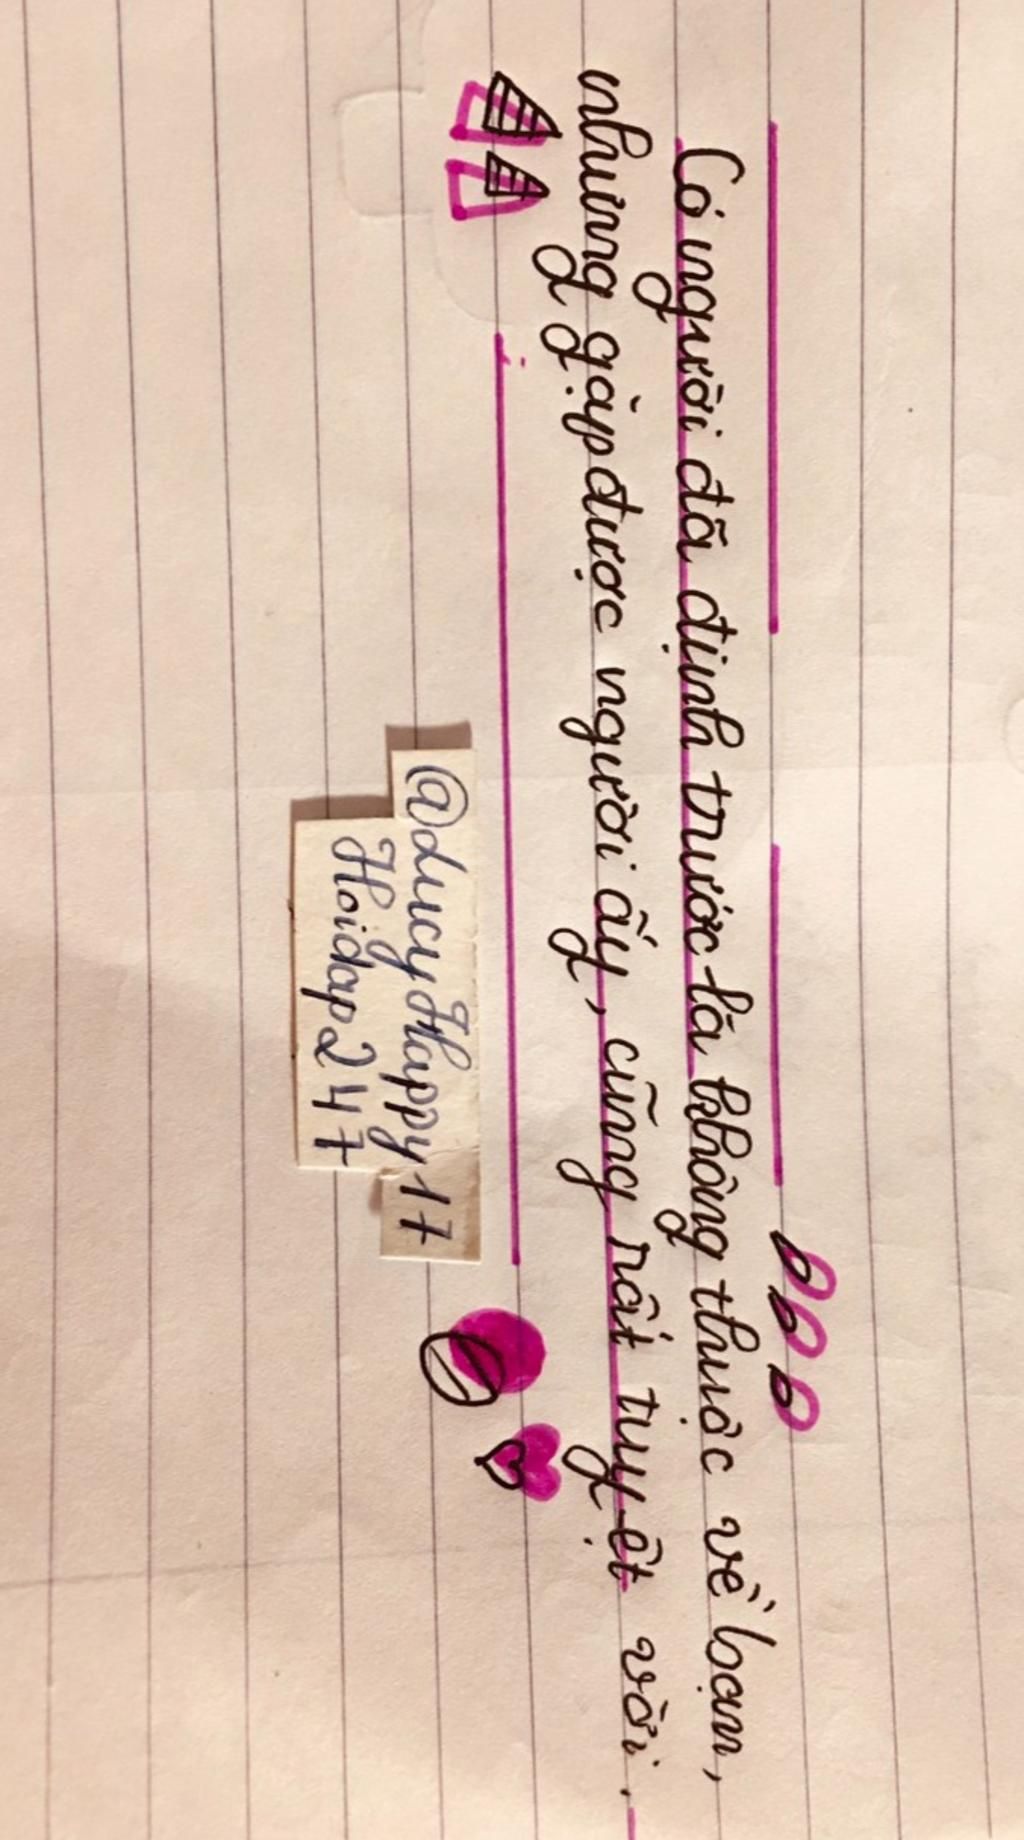 Có người đã định trước là không thuộc về bạn,
nhưng gặp được người ấy, cũng rất tuyệt vời.
@LucyHappy17
Hoidap247